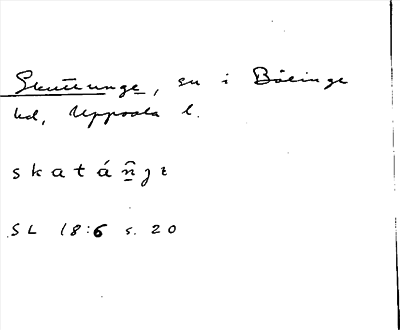 Skuttunge, sn i Bälinge
hd, Uppsala l.
skatáñ̂ȷɛ
SL 18:6 s. 20